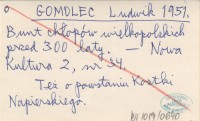 GOMOLEC Ludwik 1951.
Bunt chłopów wielkopolskich
przed 300 laty. — Nowa
Kultura 2, nr 34.
Też o powstaniu Kostki
Napierskiego.